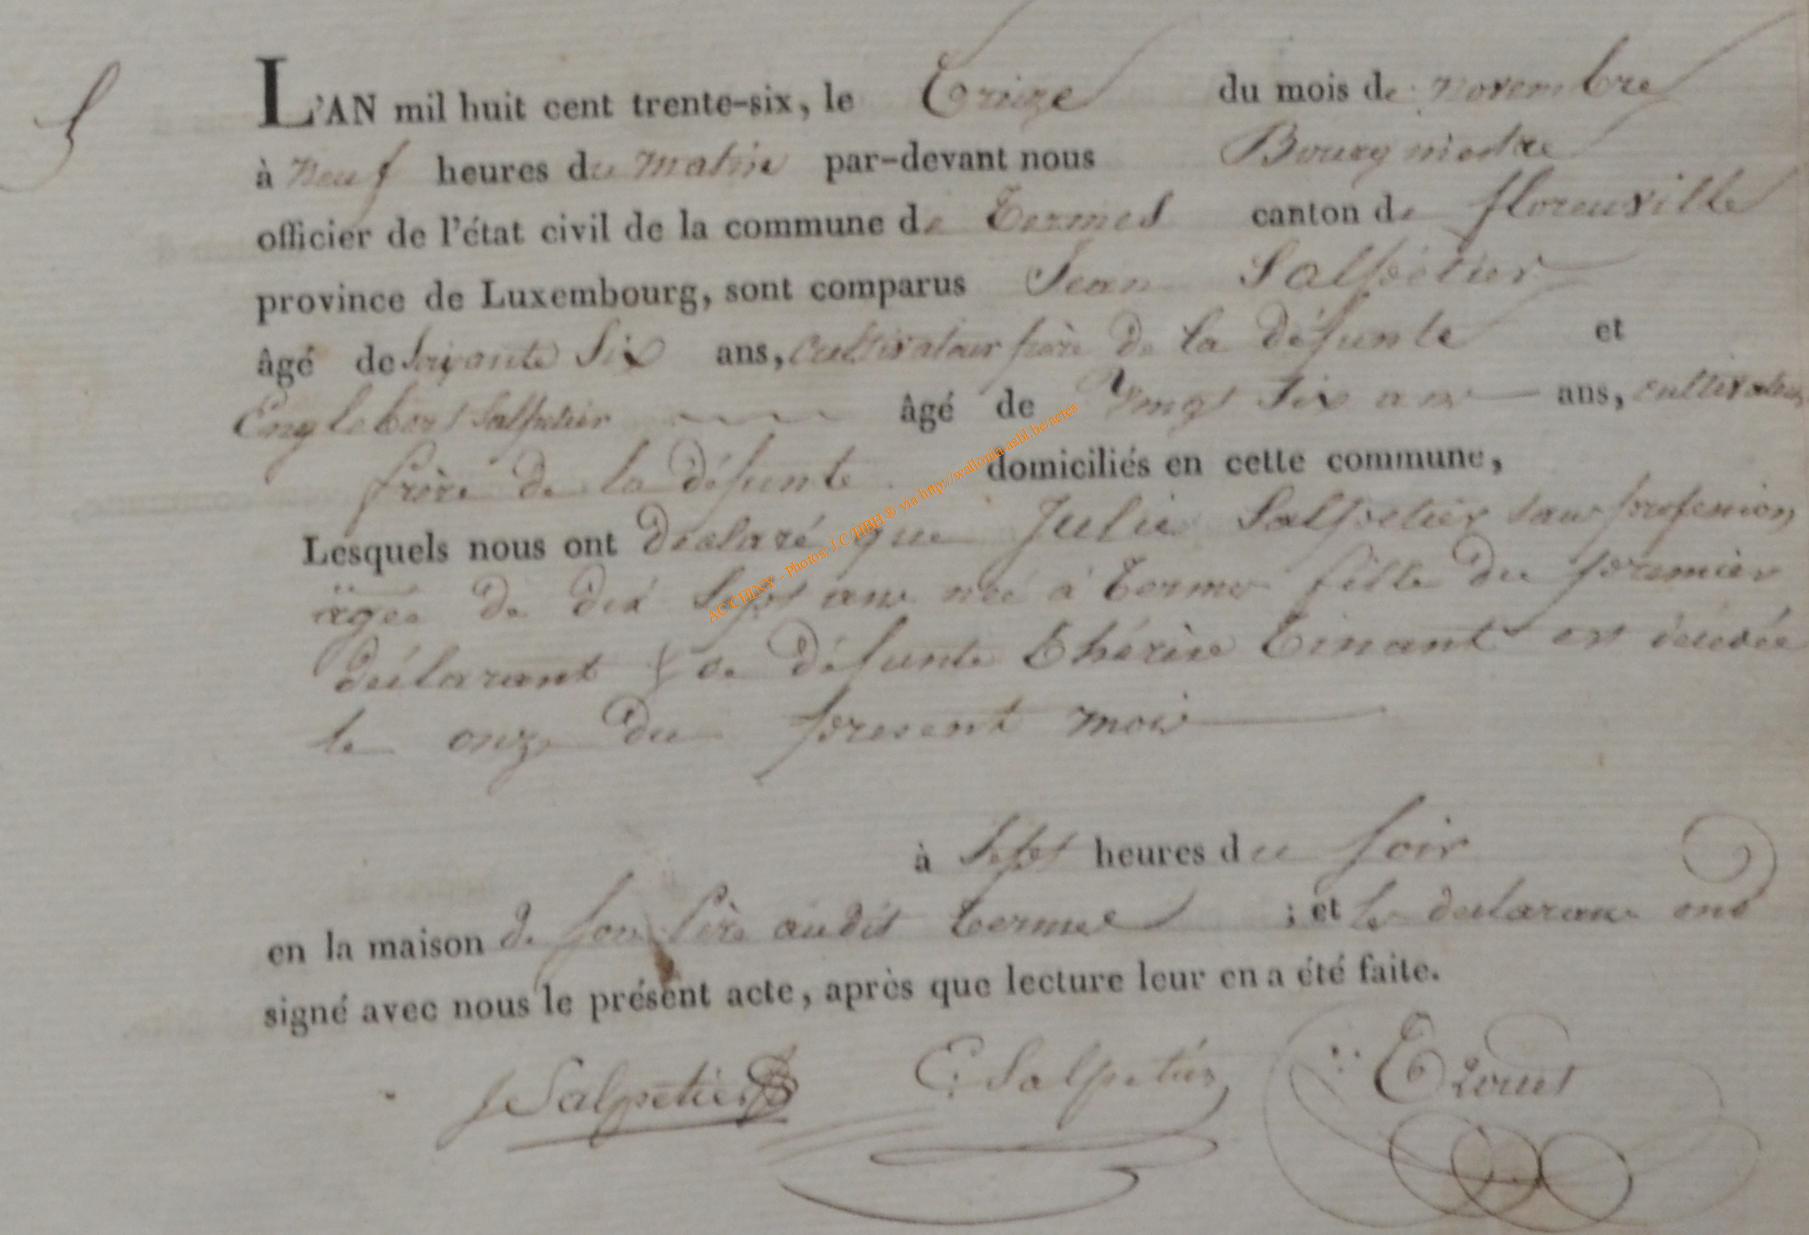 5
L'AN mil huit cent trente-six, le Treize du mois de novembre
à neuf heures du matin par-devant nous Bourgmestre
officier de l'état civil de la commune de Termes canton de florenville
province de Luxembourg, sont comparus Jean Salpetier
âgé de soixante Six ans, cultivateur père de la défunte et
Englebert Salpetier âgé de Vingt Six ans ans, cultivateur
frère de la défunte domiciliés en cette commune,
Lesquels nous ont déclaré que Julie Salpetier sans profession
âgée de dix Sept ans née à termes fille du premier
déclarant & de défunte Thérèse Tinant est décédée
le onze du present mois
à Sept heures du soir
en la maison de son père audit termes ; et les declarans ont
signé avec nous le présent acte, après que lecture leur en a été faite.
J Salpetier E. Salpetier
ACTCHINY - Photos: J.C HBH ® via http://wallonia-asbl.be/actes